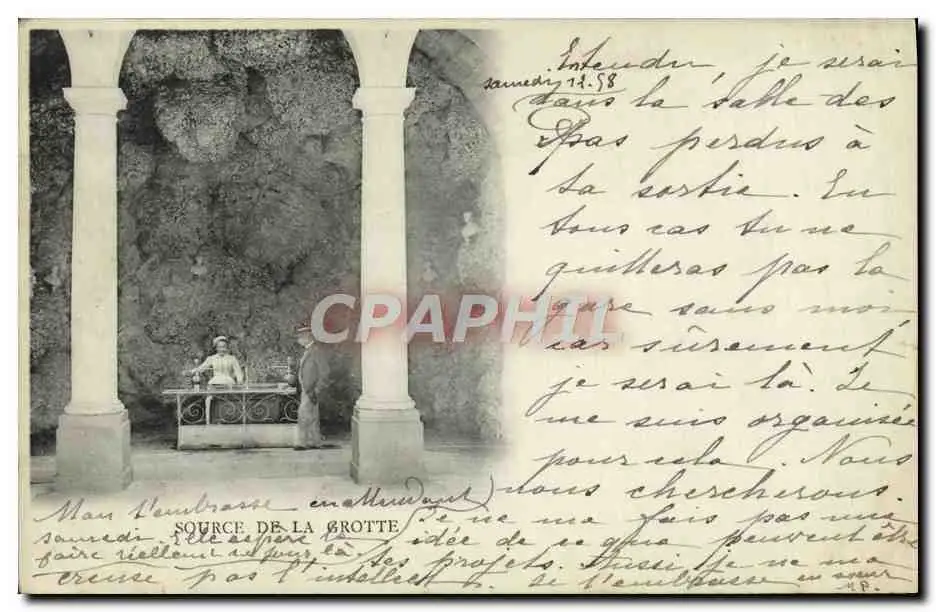 samedi 12.98
Entendu, je serai
dans la salle des
pas perdus à
ta sortie. En
tous cas tu ne
quitteras pas la
gare sans moi,
car sûrement
je serai là. Je
me suis organisée
pour cela. Nous
nous chercherons.
Je ne me fais pas une
idée de ce que peuvent être
tes projets. Aussi je ne me
creuse pas l'intellect. Je t'embrasse en sœur
M.P.
Man t'embrasse en attendant
samedi. Elle espère le
faire réellement ce jour là.
SOURCE DE LA GROTTE
CPAPHIL